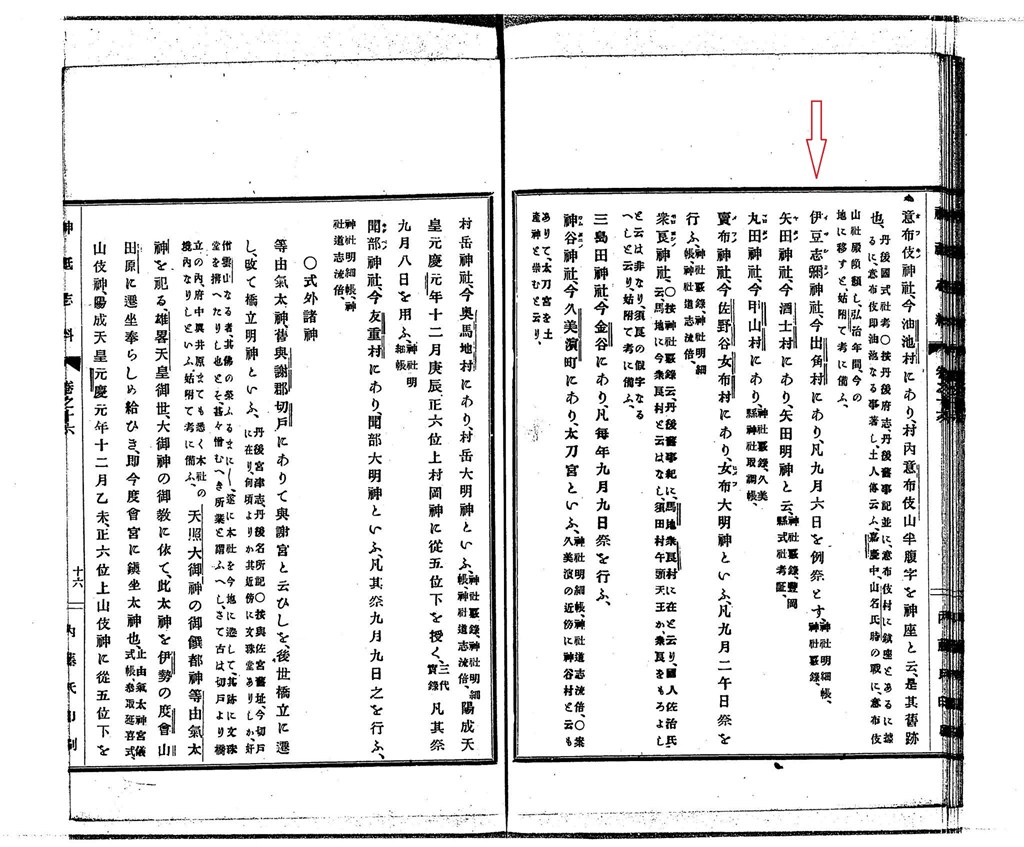 意布伎神社、今池池村にあり、村内意布伎山半腹字を神座と云、是其舊跡
也、丹後國式社考〇按丹後府志、丹後舊事記並に、意布伎村に鎮座とあるに據
るに、意布伎即油池なる事著し、土人傳云ふ、嘉慶中、山名氏時の戰に、意布伎
山社殿頽額し、弘治年間、今の
地に移すと、姑附て考に備ふ、
伊豆志彌神社、今出角村にあり、凡九月六日を例祭とす、神社明細帳、
神社覈錄、
矢田神社、今酒士村にあり、矢田明神と云、神社覈錄、豐岡
縣式社考証、
丸田神社、今甲山村にあり、神社覈錄、久美
縣神社取調帳、
賣布神社、今佐野谷女布村にあり、女布大明神といふ、凡九月二午日祭を
行ふ、神社覈錄、神社明細
帳、神社道志流倍、
衆良神社、〇按神社覈錄云、丹後舊事紀に、馬地衆良村に在と云り、國人佐治氏
云、馬地に今衆良村と云はなし、須田村午頭天王か、衆良をもろよし
と云は非なり、須良の假字なる
へしと云り、姑附て考に備ふ、
三島田神社、今金谷にあり、凡每年九月九日祭を行ふ、
神谷神社、今久美濱町にあり、太刀宮といふ、神社明細帳、神社道志流倍、〇案
久美濱の近傍に神谷村と云も
ありて、太刀宮を土
產神と崇むと云り、
村岳神社、今奧馬地村にあり、村岳大明神といふ、神社覈錄、神社明細
帳、神社道志流倍、陽成天
皇元慶元年十二月庚辰、正六位上村岡神に從五位下を授く、三代
實錄凡其祭
九月八日を用ふ、神社明
細帳
聞部神社、今友重村にあり、聞部大明神といふ、凡其祭九月九日之を行ふ、
神社明細帳、神
社道志流倍、
〇式外諸神
等由氣太神、舊與謝郡切戶にありて與謝宮と云ひしを、後世橋立に遷
し、改て橋立明神といふ、丹後宮津志、丹後名所記〇按與佐宮舊址、今切戶
に在り、何頃よりか其近傍に文珠堂ありしか、奸
僧雲山なる者其佛の榮ふるまに〱、遂に本社を今地に遷して、其跡に文珠
堂を搆へたりし也とそ、甚々憎むへき所業と謂ふへし、さて古は切戶より橋
立の內、府中與井原まても悉く本社の
境內なりしといふ、姑附て考に備ふ、天照大御神の御饌都神等由氣太
神を祀る、雄畧天皇御世、大御神の御敎に依て、此太神を伊勢の度會山
田原に遷坐奉らしめ給ひき、即今度會宮に鎭坐太神也、止由氣太神宮儀
式帳、參取延喜式、
山伎神、陽成天皇元慶元年十二月乙未、正六位上山伎神に從五位下を
神祇志料
卷之十六
十六
內藤氏印刷